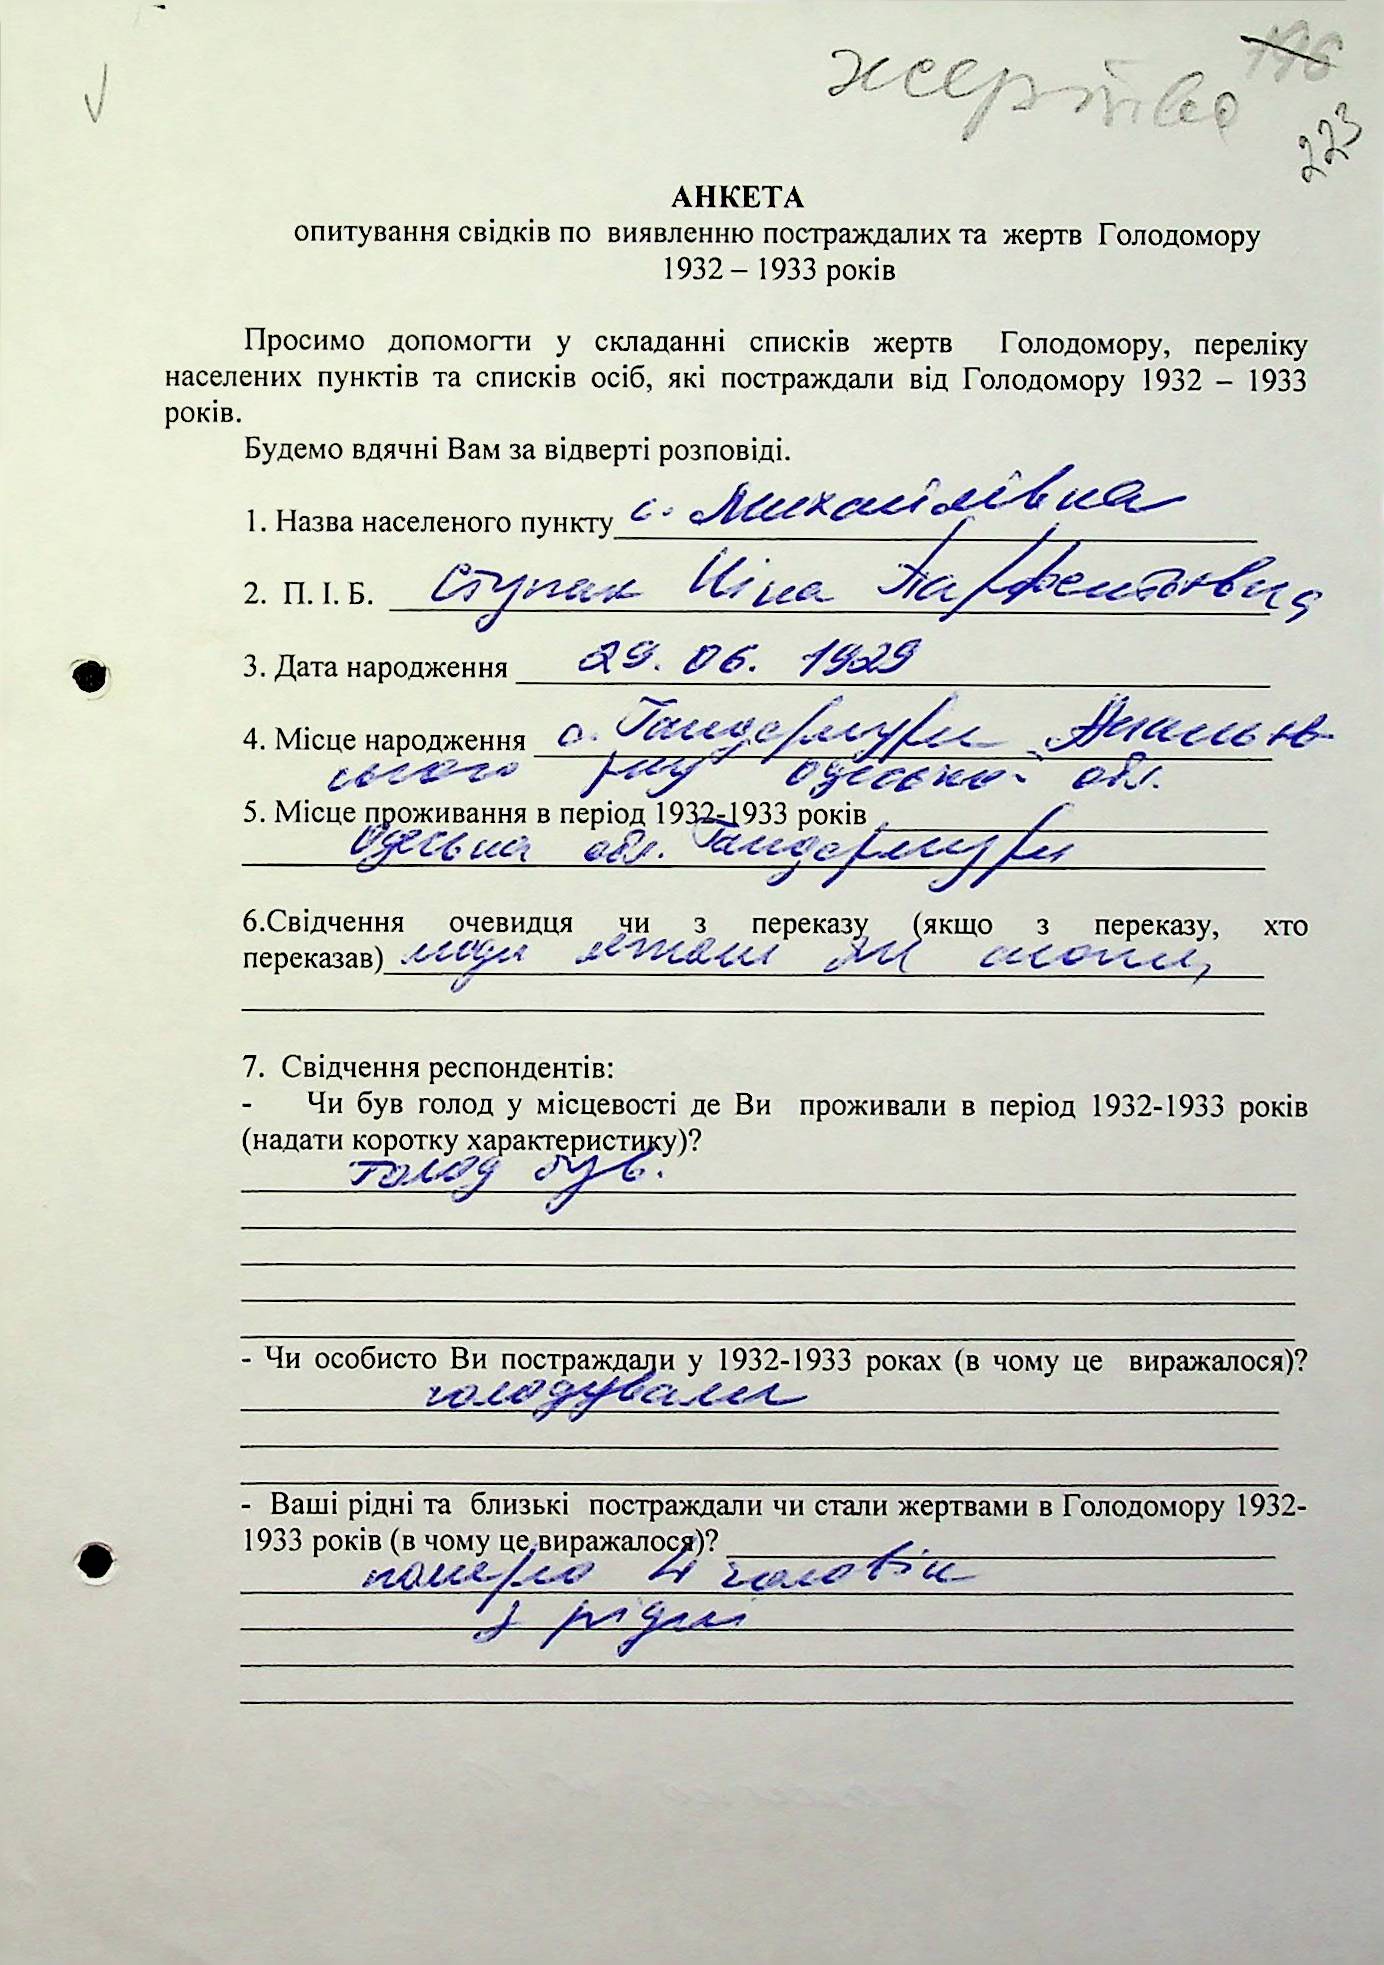 жертва 196
223
АНКЕТА
опитування свідків по виявленню постраждалих та жертв Голодомору
1932 – 1933 років
Просимо допомогти у складанні списків жертв Голодомору, переліку
населених пунктів та списків осіб, які постраждали від Голодомору 1932 – 1933
років.
Будемо вдячні Вам за відверті розповіді.
1. Назва населеного пункту с. Михайлівка
2. П. І. Б. Ступак Ніна Парфентіївна
3. Дата народження 29. 06. 1929
4. Місце народження с. Гандермури Ананьїв-
ського р-ну Одеської обл.
5. Місце проживання в період 1932-1933 років
Одеська обл. Гандермури
6.Свідчення очевидця чи з переказу (якщо з переказу, хто
переказав) люди лежали як снопи,
7. Свідчення респондентів:
- Чи був голод у місцевості де Ви проживали в період 1932-1933 років
(надати коротку характеристику)?
Голод був.
- Чи особисто Ви постраждали у 1932-1933 роках (в чому це виражалося)?
голодували
- Ваші рідні та близькі постраждали чи стали жертвами в Голодомору 1932-
1933 років (в чому це виражалося)?
померло 4 чоловік
з рідні